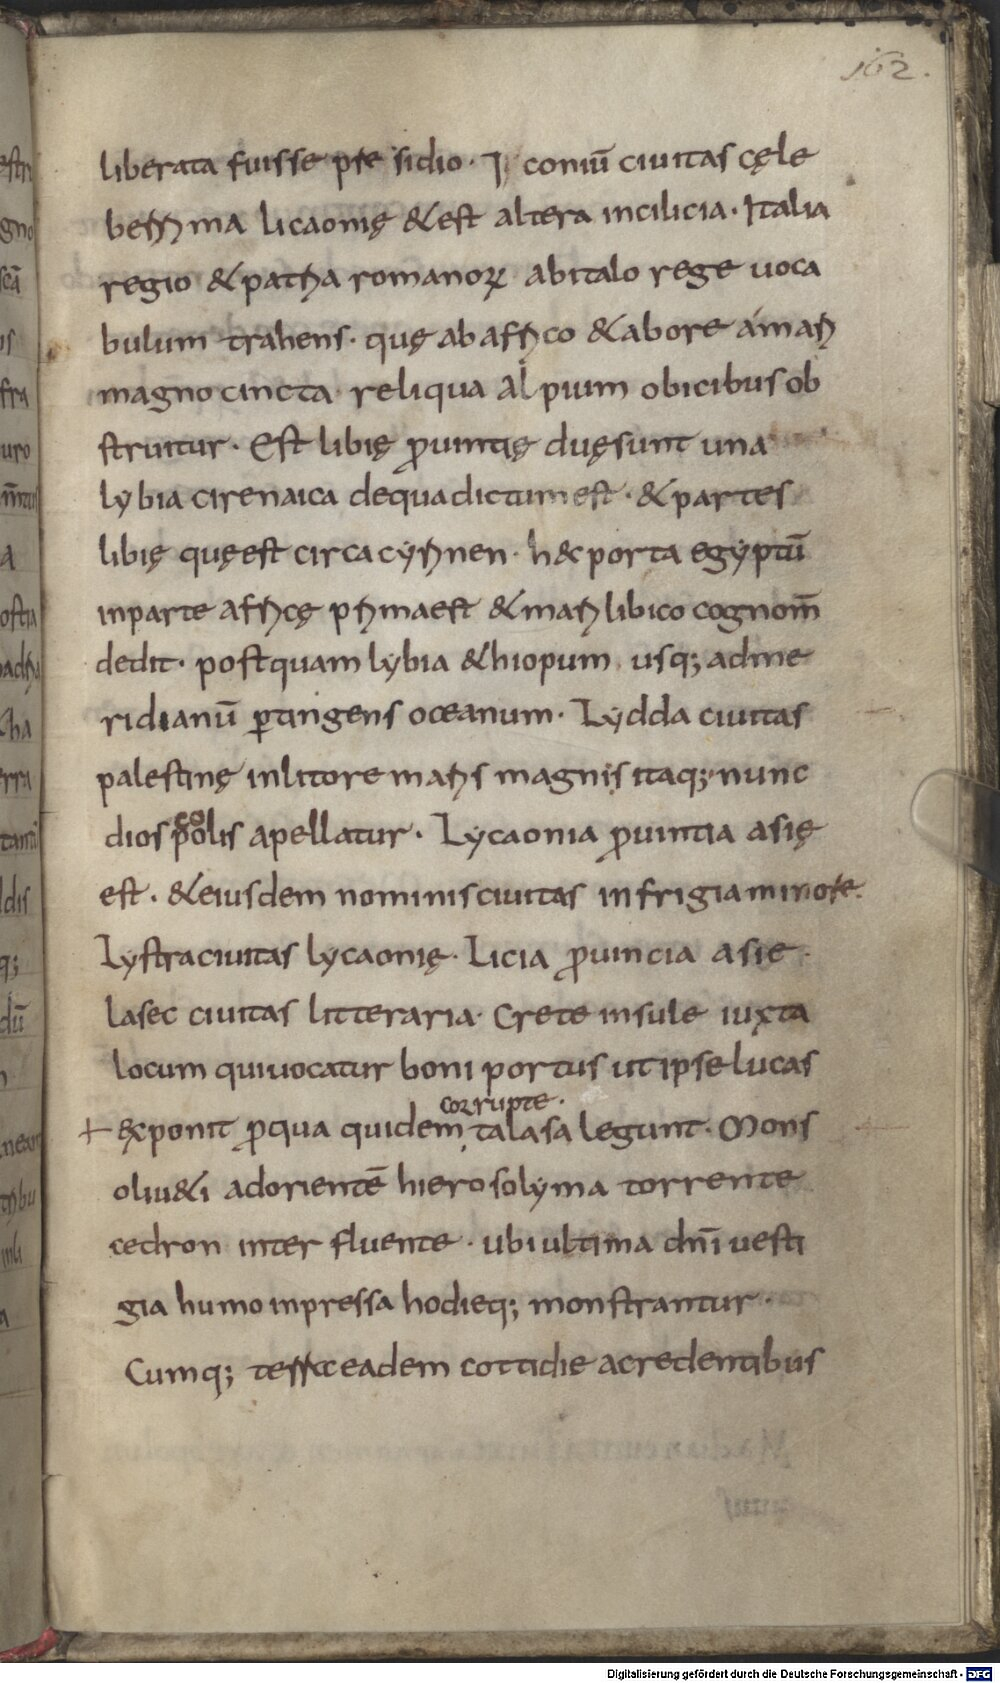 162.
liberata fuisse pre sidio · I coniū ciuitas cęle
berrima licaonię & est altera incilicia · Italia
regio & patria romanoꝝ abitalo rege uoca
bulum trahens · quę ab africo & abore a mari
magno cincta reliqua alpium obicibus ob
struitur · Est libię ꝓuintię duę sunt una
lybia cirenaica dequa dictum est · & partes
libię quę est circa cyrinen · h&c porta egyptū
inparte africę prima est & mari libico cognom̄
dedit · postquam lybia &hiopum usq; adme
ridianū ꝑtingens oceanum · Lydda ciuitas
palestinę inlitore maris magnis itaq; nunc
eo
dios polis apellatur · Lycaonia ꝓuintia asię
est · & eiusdem nominis ciuitas in frigia minore.
Lystra ciuitas lycaonię · Licia ꝓuincia asie ·
lasec ciuitas litteraria · Crete insule iuxta
locum qui uocatur boni portus ut ipse lucas
corrupte ·
+ &xponit ꝓqua quidem talasa legunt · Mons
oliu&i adorientē hierosolyma torrente
cedron inter fluente · ubi ultima dn̄i uesti
gia humo inpressa hodieq; monstrantur ·
Cumq; eadem cottidie acredentibus
Digitalisierung gefördert durch die Deutsche Forschungsgemeinschaft · DFG